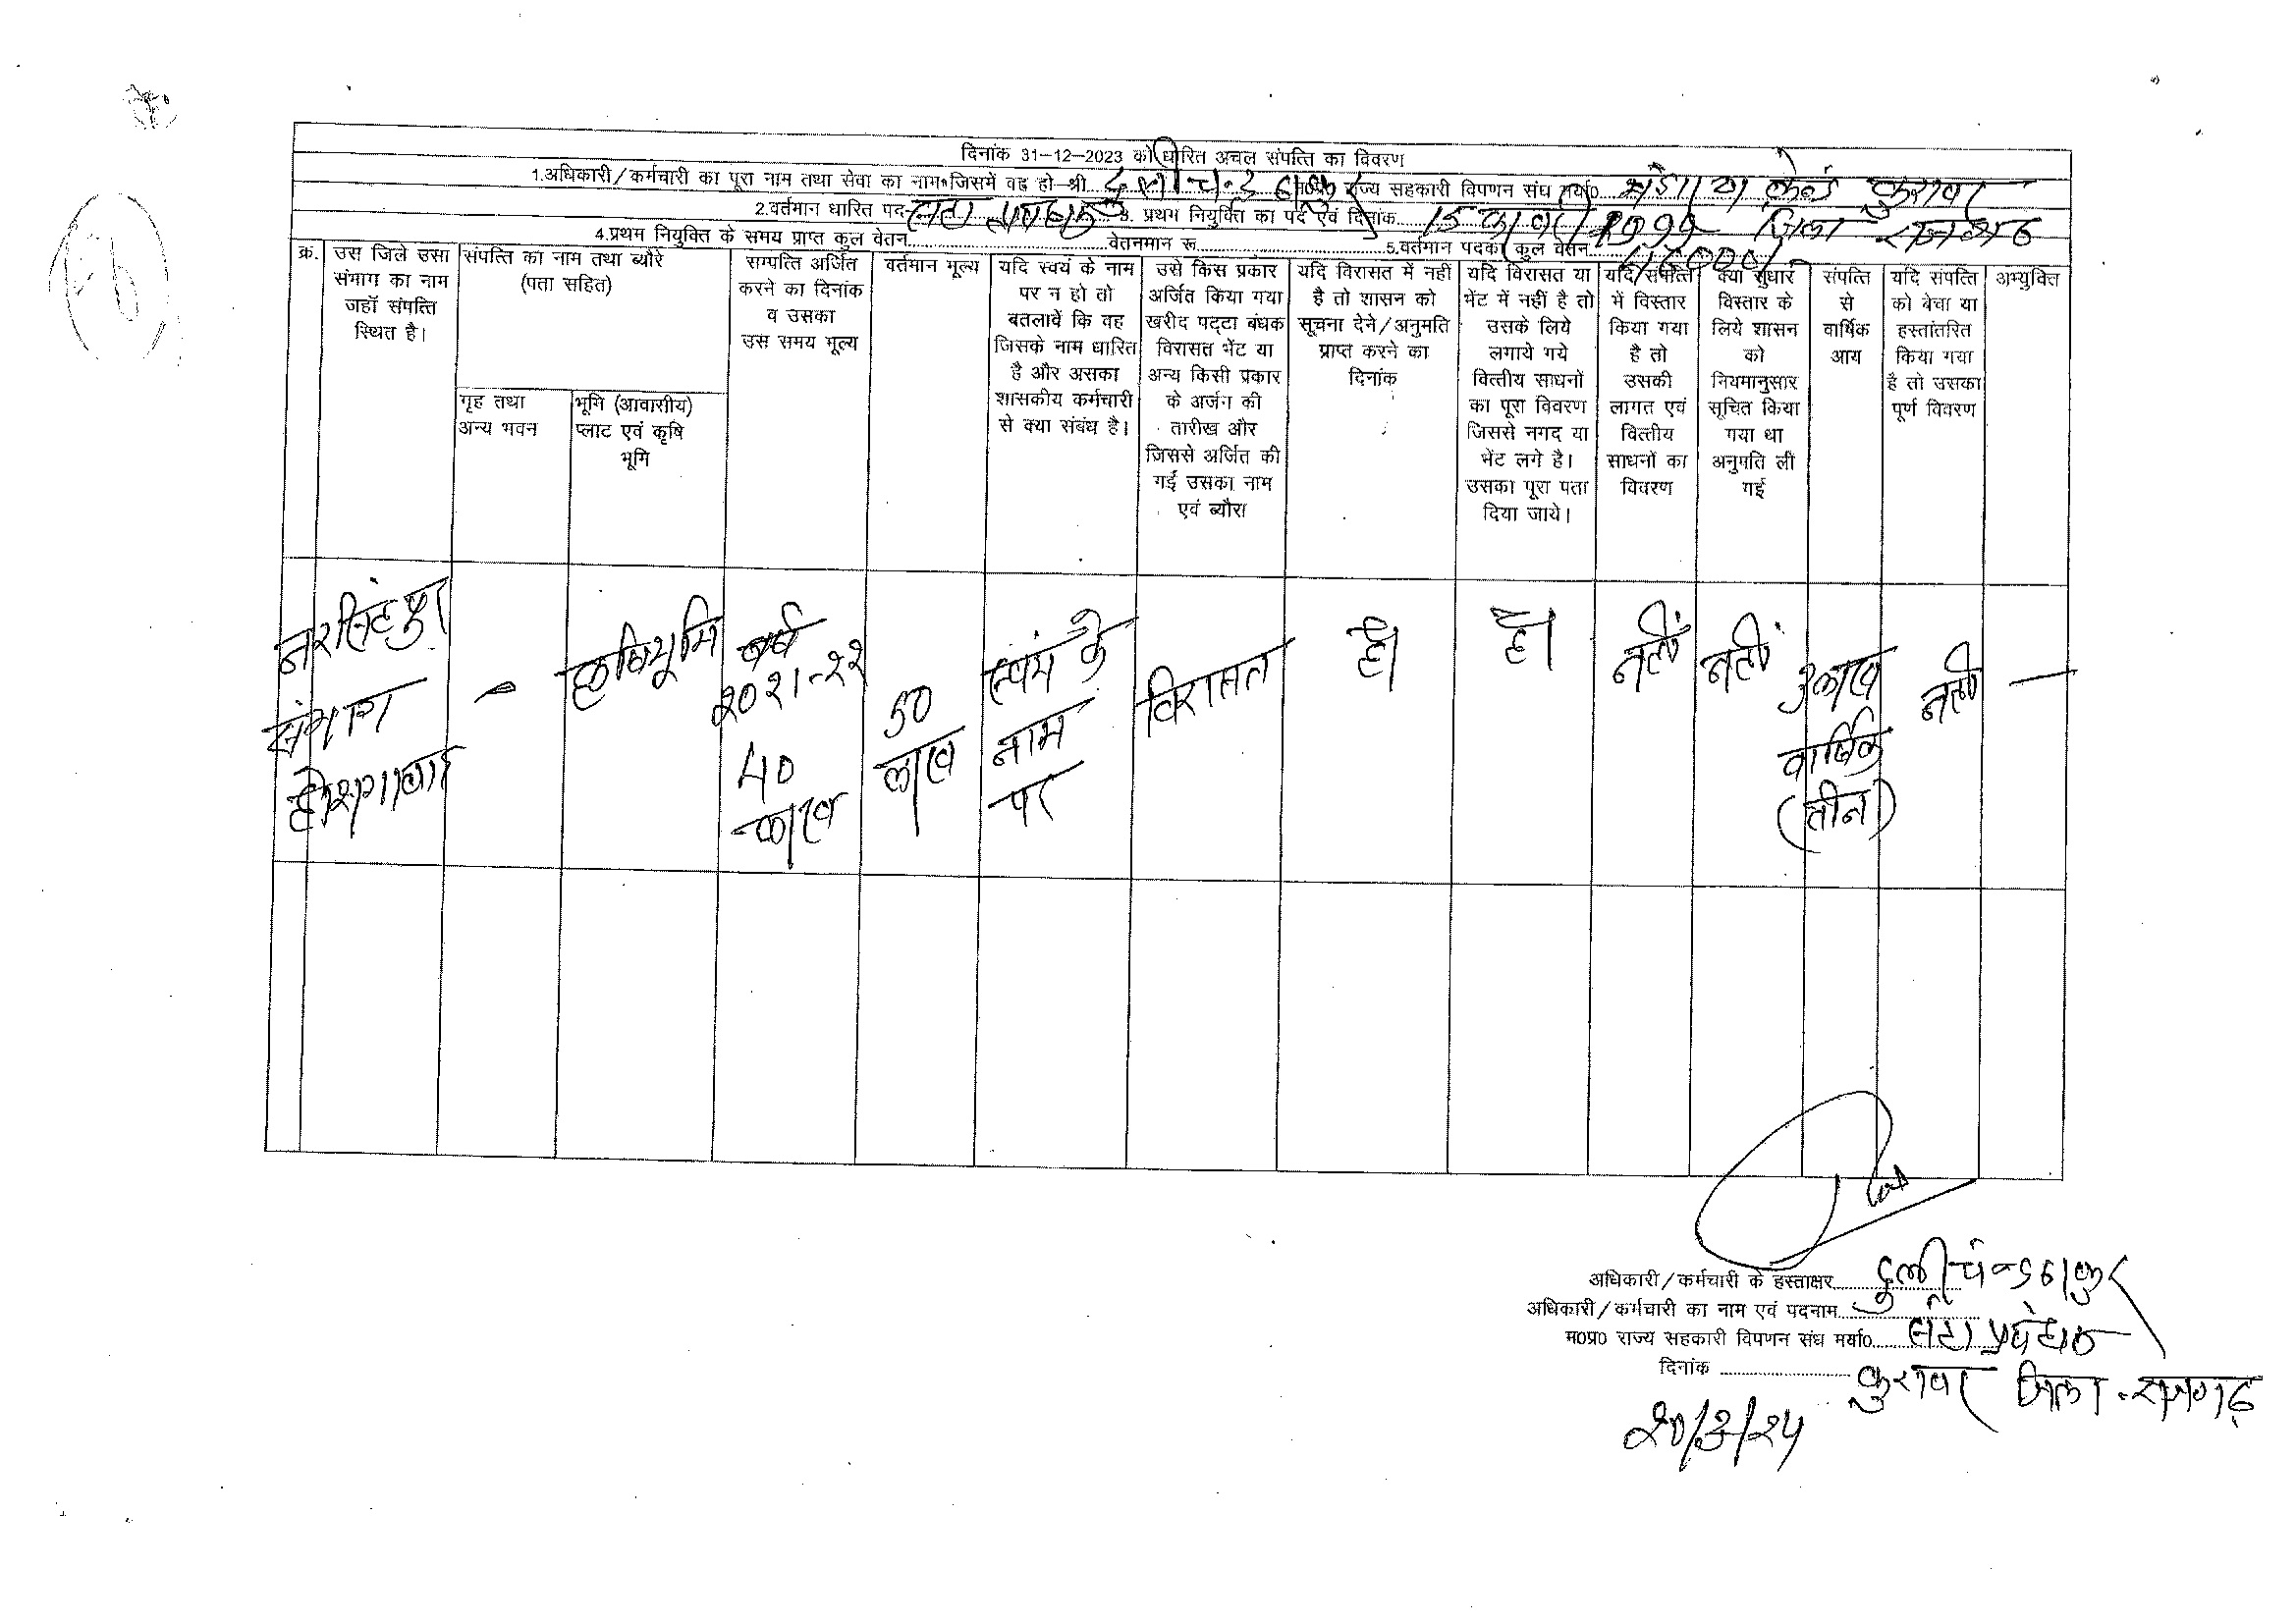 दिनांक 31-12-2023 को धारित अचल संपत्ति का विवरण
1.अधिकारी/कर्मचारी का पूरा नाम तथा सेवा का नाम जिसमें वह हो-श्री दुलीचन्द ठाकुर राज्य सहकारी विपणन संघ मर्या० भंडारण केन्द्र कुरावर
2.वर्तमान धारित पद- 3. प्रथम नियुक्ति का पद एवं दिनांक 15 जिला राजगढ
4.प्रथम नियुक्ति के समय प्राप्त कुल वेतन वेतनमान रू 5.वर्तमान पदका कुल वेतन
क्र.
उस जिले उसा
संभाग का नाम
जहाँ संपत्ति
स्थित है।
संपत्ति का नाम तथा ब्यौरे
(पता सहित)
गृह तथा
अन्य भवन
भूमि (आवासीय)
प्लाट एवं कृषि
भूमि
सम्पत्ति अर्जित
करने का दिनांक
व उसका
उस समय मूल्य
वर्तमान मूल्य
यदि स्वयं के नाम
पर न हो तो
बतलावें कि वह
जिसके नाम धारित
है और असका
शासकीय कर्मचारी
से क्या संबंध है।
उसे किस प्रकार
अर्जित किया गया
खरीद पट्टा बंधक
विरासत भेंट या
अन्य किसी प्रकार
के अर्जन की
तारीख और
जिससे अर्जित की
गई उसका नाम
एवं ब्यौरा
यदि विरासत में नहीं
है तो शासन को
सूचना देने/अनुमति
प्राप्त करने का
दिनांक
यदि विरासत या
भेंट में नहीं है तो
उसके लिये
लगाये गये
वित्तीय साधनों
का पूरा विवरण
जिससे नगद या
भेंट लगे है।
उसका पूरा पता
दिया जाये।
यदि संपत्ति
में विस्तार
किया गया
है तो
उसकी
लागत एवं
वित्तीय
साधनों का
विवरण
क्या सुधार
विस्तार के
लिये शासन
को
नियमानुसार
सूचित किया
गया था
अनुमति ली
गई
संपत्ति
से
वार्षिक
आय
यदि संपत्ति
को बेचा या
हस्तांतरित
किया गया
है तो उसका
पूर्ण विवरण
अभ्युक्ति
नरसिंहपुर
संभाग
होशंगाबाद
-
कृषिभूमि
वर्ष
2021-22
40
लाख
50
लाख
स्वयं के
नाम
पर
विरासत
हां
हां
नहीं
नहीं
3लाख
वार्षिक
(तीन)
नहीं
—
अधिकारी/कर्मचारी के हस्ताक्षर
अधिकारी/कर्मचारी का नाम एवं पदनाम दुलीचन्द ठाकुर
म०प्र० राज्य सहकारी विपणन संघ मर्या०
दिनांक कुरावर जिला-राजगढ़
20/3/24